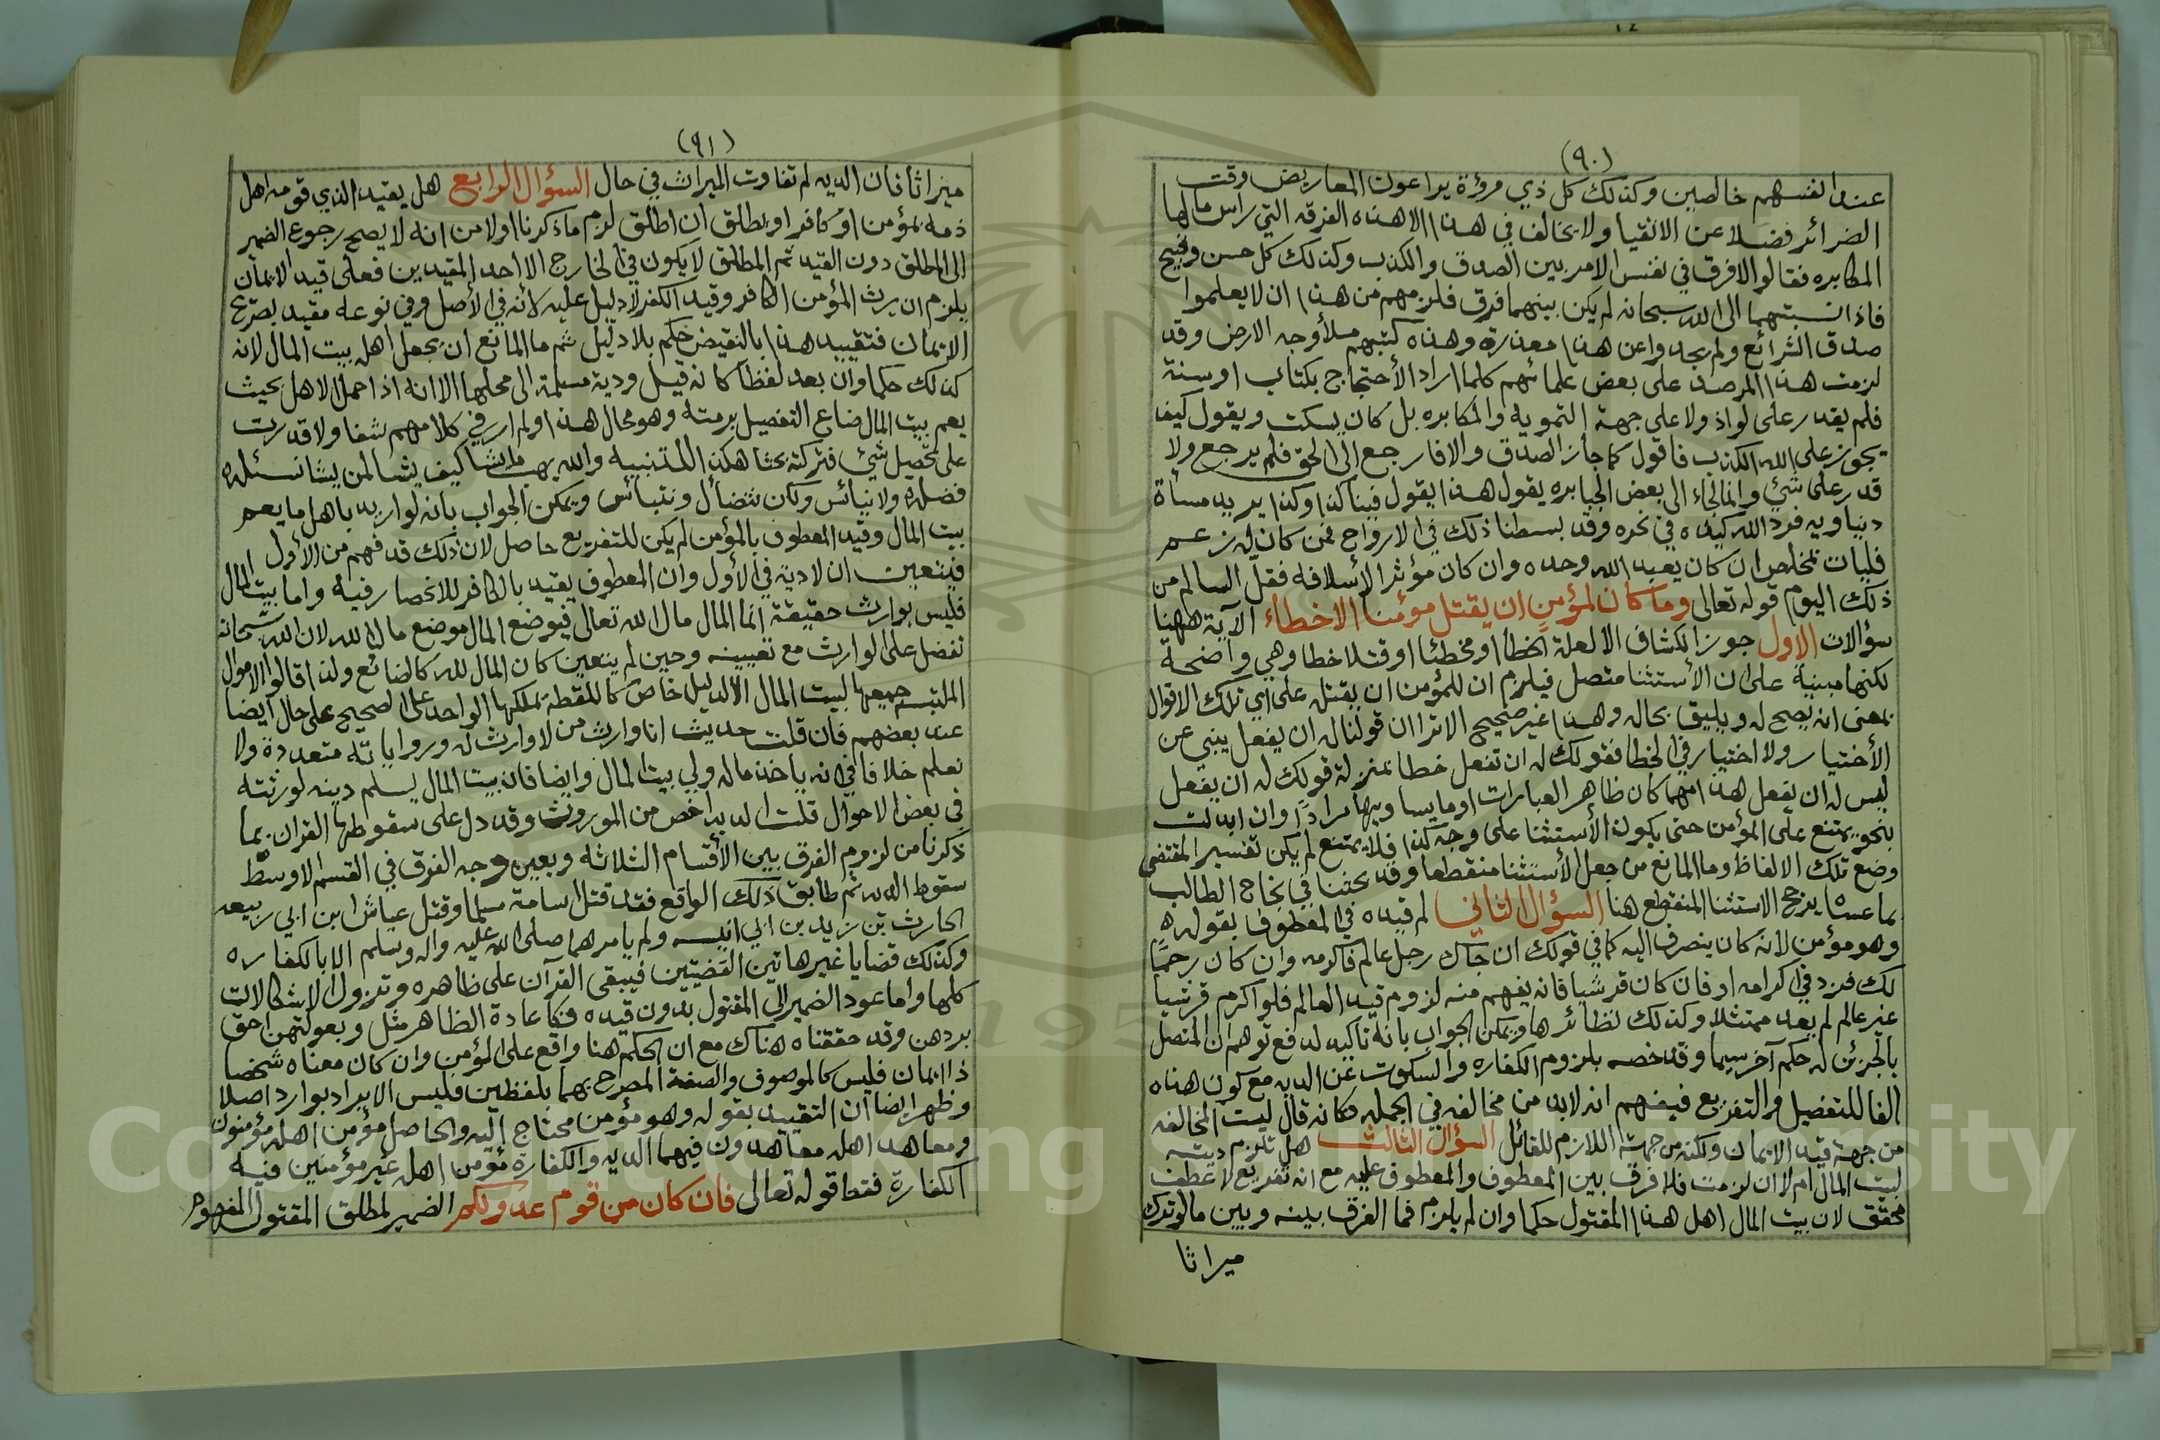 (٩٠)
عند انفسهم خالصين وكذلك كل ذي مروءة يراعون المعاريض وقت
الضرائر فضلا عن الاتقيا ولا يخالف في هذا الا هذه الفرقه التي راس مالها
المكابره فقالوا لا فرق في نفس الامر بين الصدق والكذب وكذلك كل حسن وقبيح
فاذا نسبتهما الى الله سبحانه لم يكن بينهما فرق فلزمهم من هذا ان لا يعلموا
صدق الشرائع ولم يجدوا عن هذا معذرة وهذه كتبهم ملأ وجه الارض وقد
لزمت هذا المرصد على بعض علمائهم كلما اراد الأحتجاج بكتاب او سنة
فلم يقدر على لواذ ولا على جهة التمويه والمكابره بل كان يسكت ويقول كيف
يجوز على الله الكذب فاقول كما جاز الصدق والا فارجع الى الحق فلم يرجع ولا
قدر على شئ وانما لجاء الى بعض الجبابره يقول هذا يقول فينا كذا وكذا يريد مسأة
دنياويه فرد الله كيده في نحره وقد بسطنا ذلك في الارواح فمن كان له زعم
فليات بمخلص ان كان يعبد الله وحده وان كان مؤثر الأسلافه فقل السالم من
ذلك اليوم قوله تعالى وما كان لمؤمن ان يقتل مؤمنا الا خطاء الآية ههنا
سؤالات الاول جوز الكشاف الا لعلة الخطأ او مخطئا او قتلا خطا وهي واضحة
لكنها مبنية على ان الأستثنا متصل فيلزم ان للمؤمن ان يقتل على اي تلك الاقوال
بمعنى انه يصح له ويليق بحاله وهذا غير صحيح الا ترا ان قولنا له ان يفعل ينبي عن
الأختيار ولا اختيار في الخطا فقولك له ان تفعل خطا بمنزلة قولك له ان يفعل
ليس له ان يفعل هذا مهما كان ظاهر العبارات او ما يساويها مرادا وان ابدلت
بنحو يمتنع على المؤمن حتى يكون الأستثنا على وجه كذا فلا يمتنع لم يكن تفسير المقتضى
وضع تلك الالفاظ وما المانع من جعل الأستثنا منقطعا وقد بحثنا في نجاح الطالب
بما عساه يرجح الاستثنا المنقطع هنا السؤال الثاني لم قيده في المعطوف بقوله
وهو مؤمن لانه كان ينصرف اليه كما في قولك ان جاك رجل عالم فاكرمه وان كان رحما
لك فزد في اكرامه او فان كان قرشيا فانه يفهم منه لزوم قيد العالم فلو اكرم قرشيا
غير عالم لم يعد ممتثلا وكذلك نظائرها ويمكن الجواب بانه تاكيد لدفع توهم ان المتصل
بالحربي له حكم آخر سيما وقد خصه بلزوم الكفاره والسكوت عن الديه مع كون هذه
الفا للتفصيل والتفريع فيفهم انه لابد من مخالفه في الجمله فكانه قال ليست المخالفه
من جهة قيد الايمان ولكنه من جهة اللازم للقاتل السؤال الثالث هل تلزم ديته
لبيت المال ام لا ان لزمت فلا فرق بين المعطوف والمعطوف عليه مع انه تفريع لا عطف
محقق لان بيت المال اهل هذا المقتول حكما وان لم يلزم فما الفرق بينه وبين ما لو ترك
ميراثا
(٩١)
ميراثا فان الديه لم تفاوت الميراث في حال السؤال الرابع هل يقيد الذي قومه اهل
ذمه بمؤمن او كافر او يطلق ان اطلق لزم ما ذكرنا اولا من انه لا يصح رجوع الضمير
الى المطلق دون القيد ثم المطلق لا يكون في الخارج الا احد المقيدين فعلى قيد الايمان
يلزم ان يرث المؤمن الكافر وقيد الكفر لا دليل عليه لانه في الأصل وفي نوعه مقيد بصريح
الايمان فتقييد هذا بالنقيض حكم بلا دليل ثم ما المانع ان يجعل اهله بيت المال لانه
كذلك حكما وان بعد لفظا كانه قيل ودية مسلمة الى محلها الا انه اذا حمل الاهل بحيث
يعم بيت المال ضاع التفصيل برمته وهو محال هذا ولم ار في كلامهم شفا ولا قدرت
على تحصيل شئ فتركته بحثا هكذا للتنبيه والله يهب ما يشا كيف يشا لمن يشا نسئله
فضله ولا نيائس ولكن نتضائل ونتبائس ويمكن الجواب بانه لو اريد باهل ما يعم
بيت المال وقيد المعطوف بالمؤمن لم يكن للتفريع حاصل لان ذلك قد فهم من الأول
فيتعين ان لا دية في الأول وان المعطوف يقيد بالكافر للانحصار فيه واما بيت المال
فليس بوارث حقيقة انما المال مال الله تعالى فيوضع المال موضع مال الله لان الله سبحانه
تفضل على الوارث مع تعيينه وحين لم يتعين كان المال لله كالضائع ولذا قالوا الاموال
الملتبسه جميعها لبيت المال الا لدليل خاص كاللقطة يملكها الواحد على الصحيح على حال ايضا
عند بعضهم فان قلت حديث انا وارث من لا وارث له ورواياته متعددة ولا
نعلم خلافا في انه ياخذ ماله ولي بيت المال وايضا فان بيت المال يسلم دينه لورثته
في بعض الاحوال قلت الديه اخص من الموروث وقد دل على سقوطها القران بما
ذكرنا من لزوم الفرق بين الأقسام الثلاثه وبعين وجه الفرق في القسم الاوسط
سقوط الديه ثم طابق ذلك الواقع فقد قتل اسامة مسلما وقتل عياش ابن ابي ربيعه
الحارث بن زيد بن ابي انيسه ولم يامرهما صلى الله عليه واله وسلم الا بالكفاره
وكذلك قضايا غير هاتين القضيتين فيبقى القرآن على ظاهره وتزول الاشكالات
كلها واما عود الضمير الى المقتول بدون قيده فكاعادة الظاهر مثل وبعولتهن احق
بردهن وقد حققناه هناك مع ان الحكم هنا واقع على المؤمن وان كان معناه شخصا
ذا ايمان فليس كالموصوف والصفة المصرح بهما بلفظين فليس الايراد بوارد اصلا
وظهر ايضا ان التقييد بقوله وهو مؤمن محتاج اليه والحاصل مؤمن اهله مؤمنون
ومعاهد اهله معاهدون فيهما الديه والكفارة مؤمن اهله غير مؤمنين فيه
الكفارة فقط قوله تعالى فان كان من قوم عدو لكم الضمير لمطلق المقتول المفهوم